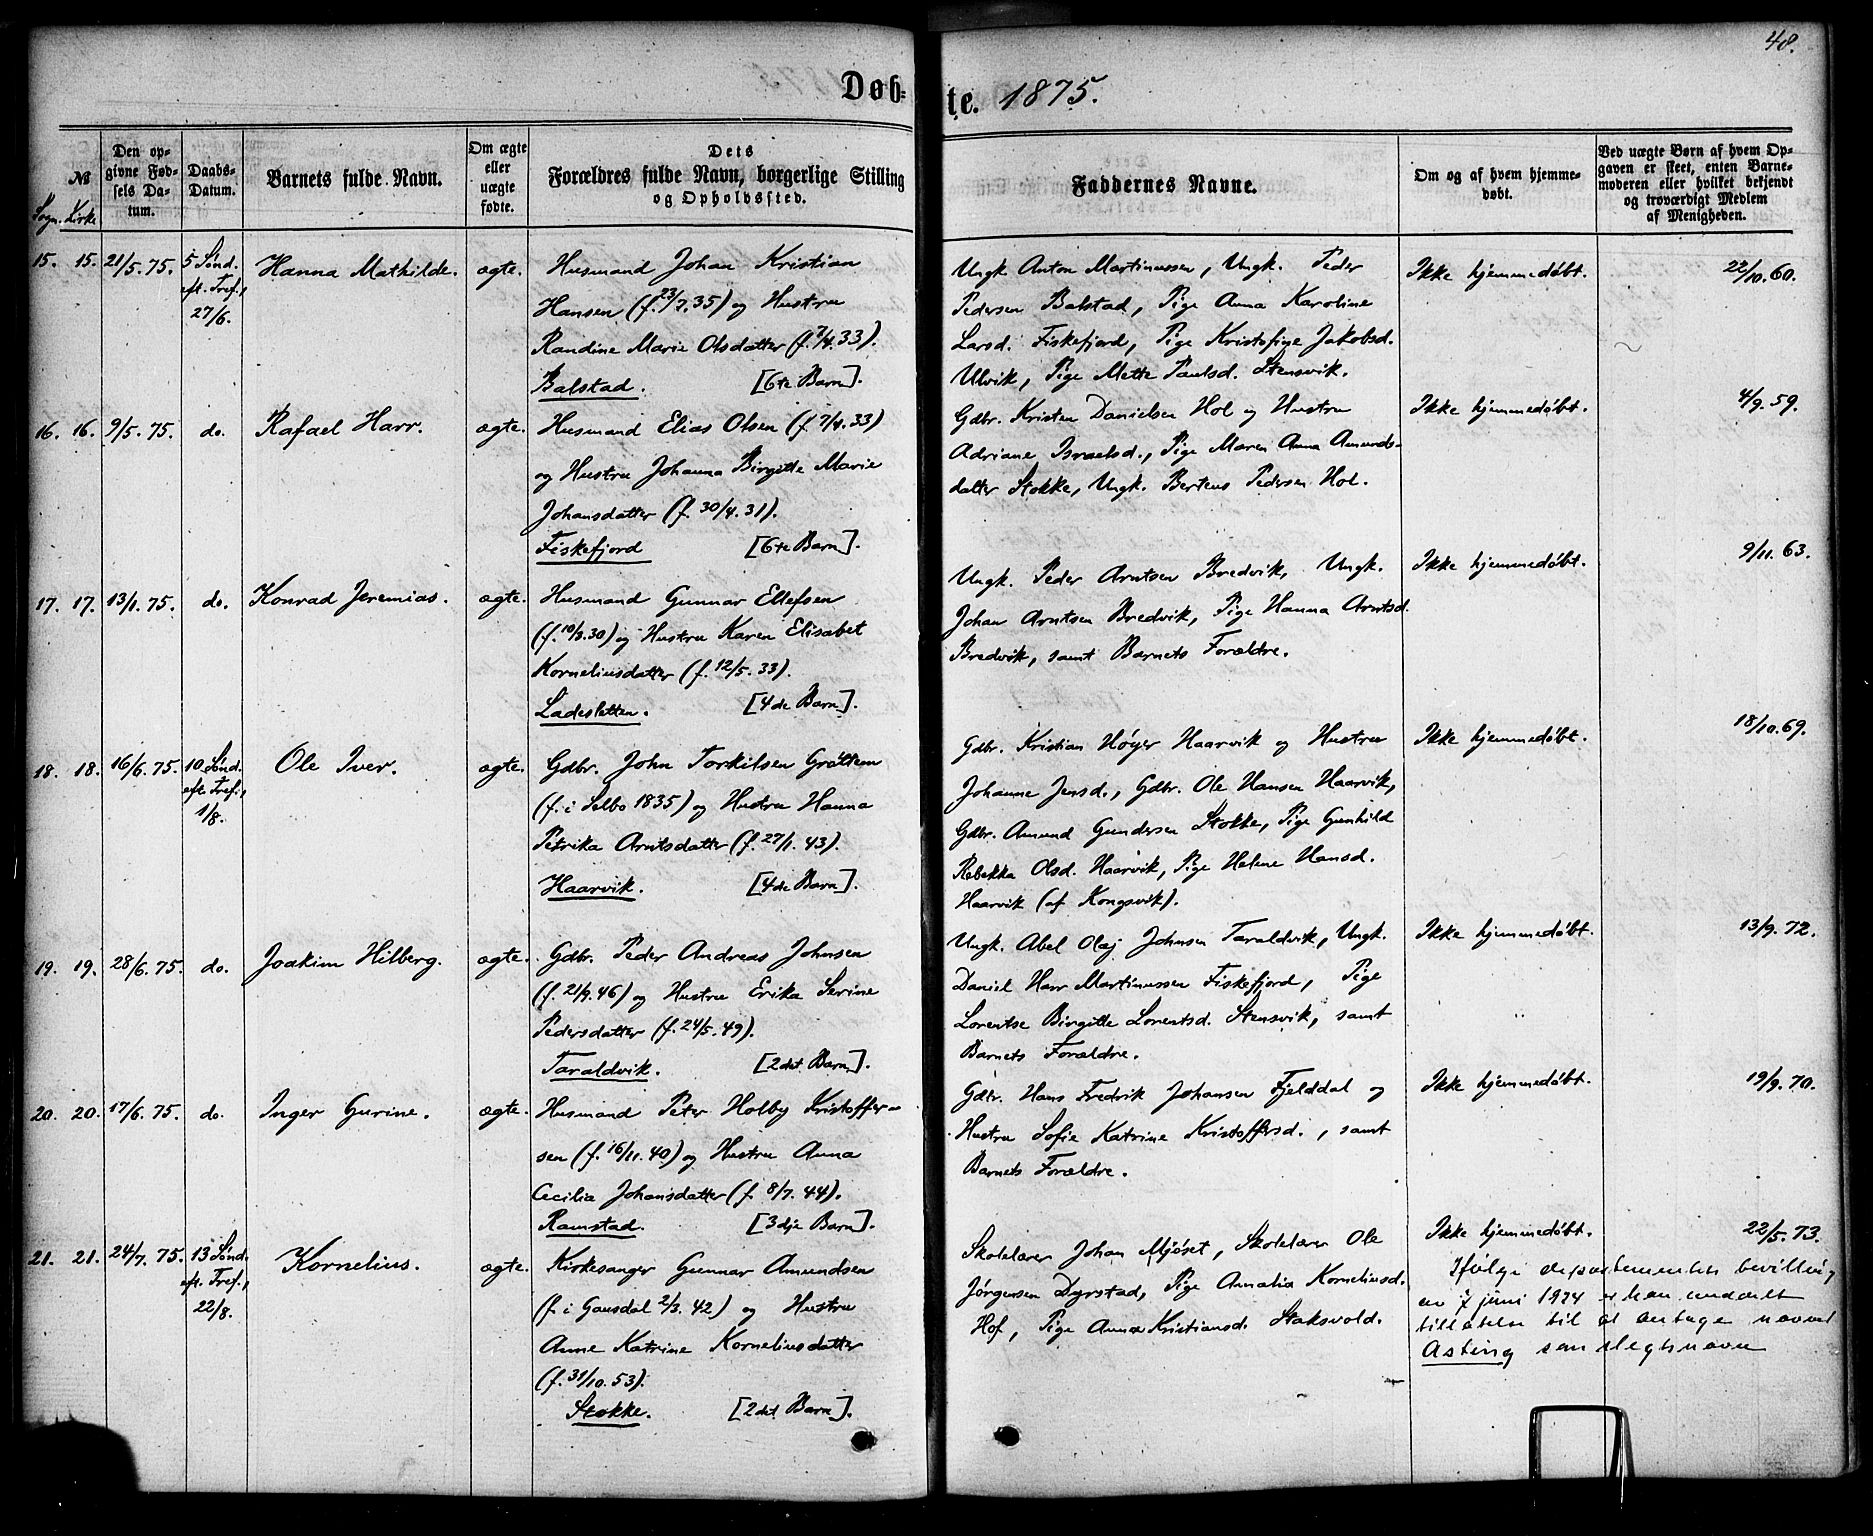 48.
Døb=
te. 1875.
№
Sogn. Kirke
Den op-
givne Fød-
sels Da-
tum.
Daabs-
Datum.
Barnets fulde Navn.
Om ægte
eller
uægte
fødte.
Dets
Forældres fulde Navn, borgerlige Stilling
og Opholdssted.
Faddernes Navne.
Om og af hvem hjemme-
døbt.
Ved uægte Børn af hvem Op-
gaven er skeet, enten Barne-
moderen eller hvilket bekjendt
og troværdigt Medlem
af Menigheden.
15. 15. 21/5. 75. 5 Sønd.
eft. Tref.,
27/6.
Hanna Mathilde.
ægte.
Husmand Johan Kristian
Hansen (f. 23/7. 35) og Hustru
Randine Marie Olsdatter (f. 7/4. 33).
Balstad. [6te Barn].
Ungk. Anton Martinussen, Ungk. Peder
Pedersen Balstad, Pige Anna Karoline
Larsd. Fiskefjord, Pige Kristofige Jakobsd.
Ulvik, Pige Mette Paulsd. Stensvik.
Ikke hjemmedøbt.
22/10. 60.
16. 16. 9/5. 75. do.
Rafael Harr.
ægte.
Husmand Elias Olsen (f. 7/4. 33)
og Hustru Johanna Birgitte Marie
Johansdatter (f. 30/4. 31).
Fiskefjord [6te Barn].
Gdbr. Kristen Danielsen Hol og Hustru
Adriane Israelsd., Pige Maren Anna Amunds-
datter Stokke, Ungk. Berteus Pedersen Hol.
Ikke hjemmedøbt.
4/9. 59.
17. 17. 13/1. 75. do.
Konrad Jeremias.
ægte.
Husmand Gunnar Ellefsen
(f. 10/3. 30) og Hustru Karen Elisabet
Korneliusdatter (f. 12/5. 33).
Ladesletten. [4de Barn].
Ungk. Peder Arntsen Bredvik, Ungk.
Johan Arntsen Bredvik, Pige Hanna Arntsd.
Bredvik, samt Barnets Forældre.
Ikke hjemmedøbt.
9/11. 63.
18. 18. 16/6. 75. 10 Sønd.
eft. Tref.,
1/8.
Ole Iver.
ægte.
Gdbr. John Torkilsen Grøttem
(f. i Selbo 1835) og Hustru Hanna
Petrika Arntsdatter (f. 27/1. 43).
Haarvik. [4de Barn].
Gdbr. Kristian Høyer Haarvik og Hustru
Johanne Jensd., Gdbr. Ole Hansen Haarvik,
Gdbr. Amund Gundersen Stokke, Pige Gunhild
Rebekka Olsd. Haarvik, Pige Helene Hansd.
Haarvik (af Kongsvik).
Ikke hjemmedøbt.
18/10. 69.
19. 19. 28/6. 75. do.
Joakim Hilberg.
ægte.
Gdbr. Peder Andreas Johnsen
(f. 21/9. 46) og Hustru Erika Serine
Pedersdatter (f. 24/5. 49).
Taraldvik. [2det Barn].
Ungk. Abel Olaj Johnsen Taraldvik, Ungk.
Daniel Harr Martinussen Fiskefjord, Pige
Lorentse Birgitte Lorentsd. Stensvik, samt
Barnets Forældre.
Ikke hjemmedøbt.
13/9. 72.
20. 20. 17/6. 75. do.
Inger Gurine.
ægte.
Husmand Peter Holby Kristoffer-
sen (f. 16/11. 40) og Hustru Anna
Cecilia Johansdatter (f. 8/7. 44).
Ramstad. [3dje Barn].
Gdbr. Hans Fredrik Johansen Fjelddal og
Hustru Sofie Katrine Kristoffersd., samt
Barnets Forældre.
Ikke hjemmedøbt.
19/9. 70.
21. 21. 24/7. 75. 13 Sønd.
eft. Tref.,
22/8.
Kornelius.
ægte.
Kirkesanger Gunnar Amundsen
(f. i Gausdal 2/3. 42) og Hustru
Anne Katrine Korneliusdatter
(f. 31/10. 53).
Stokke. [2det Barn].
Skolelærer Johan Mjøset, Skolelærer Ole
Jørgensen Dyrstad, Pige Amalia Korneliusd.
Hof, Pige Anna Kristiansd. Staksvold.
Ikke hjemmedøbt.
22/5. 73.
Ifølge departementets bevilling
av 7 juni 1924 er han meddelt
tillatelse til at antage navnet
Asting som slegtsnavn